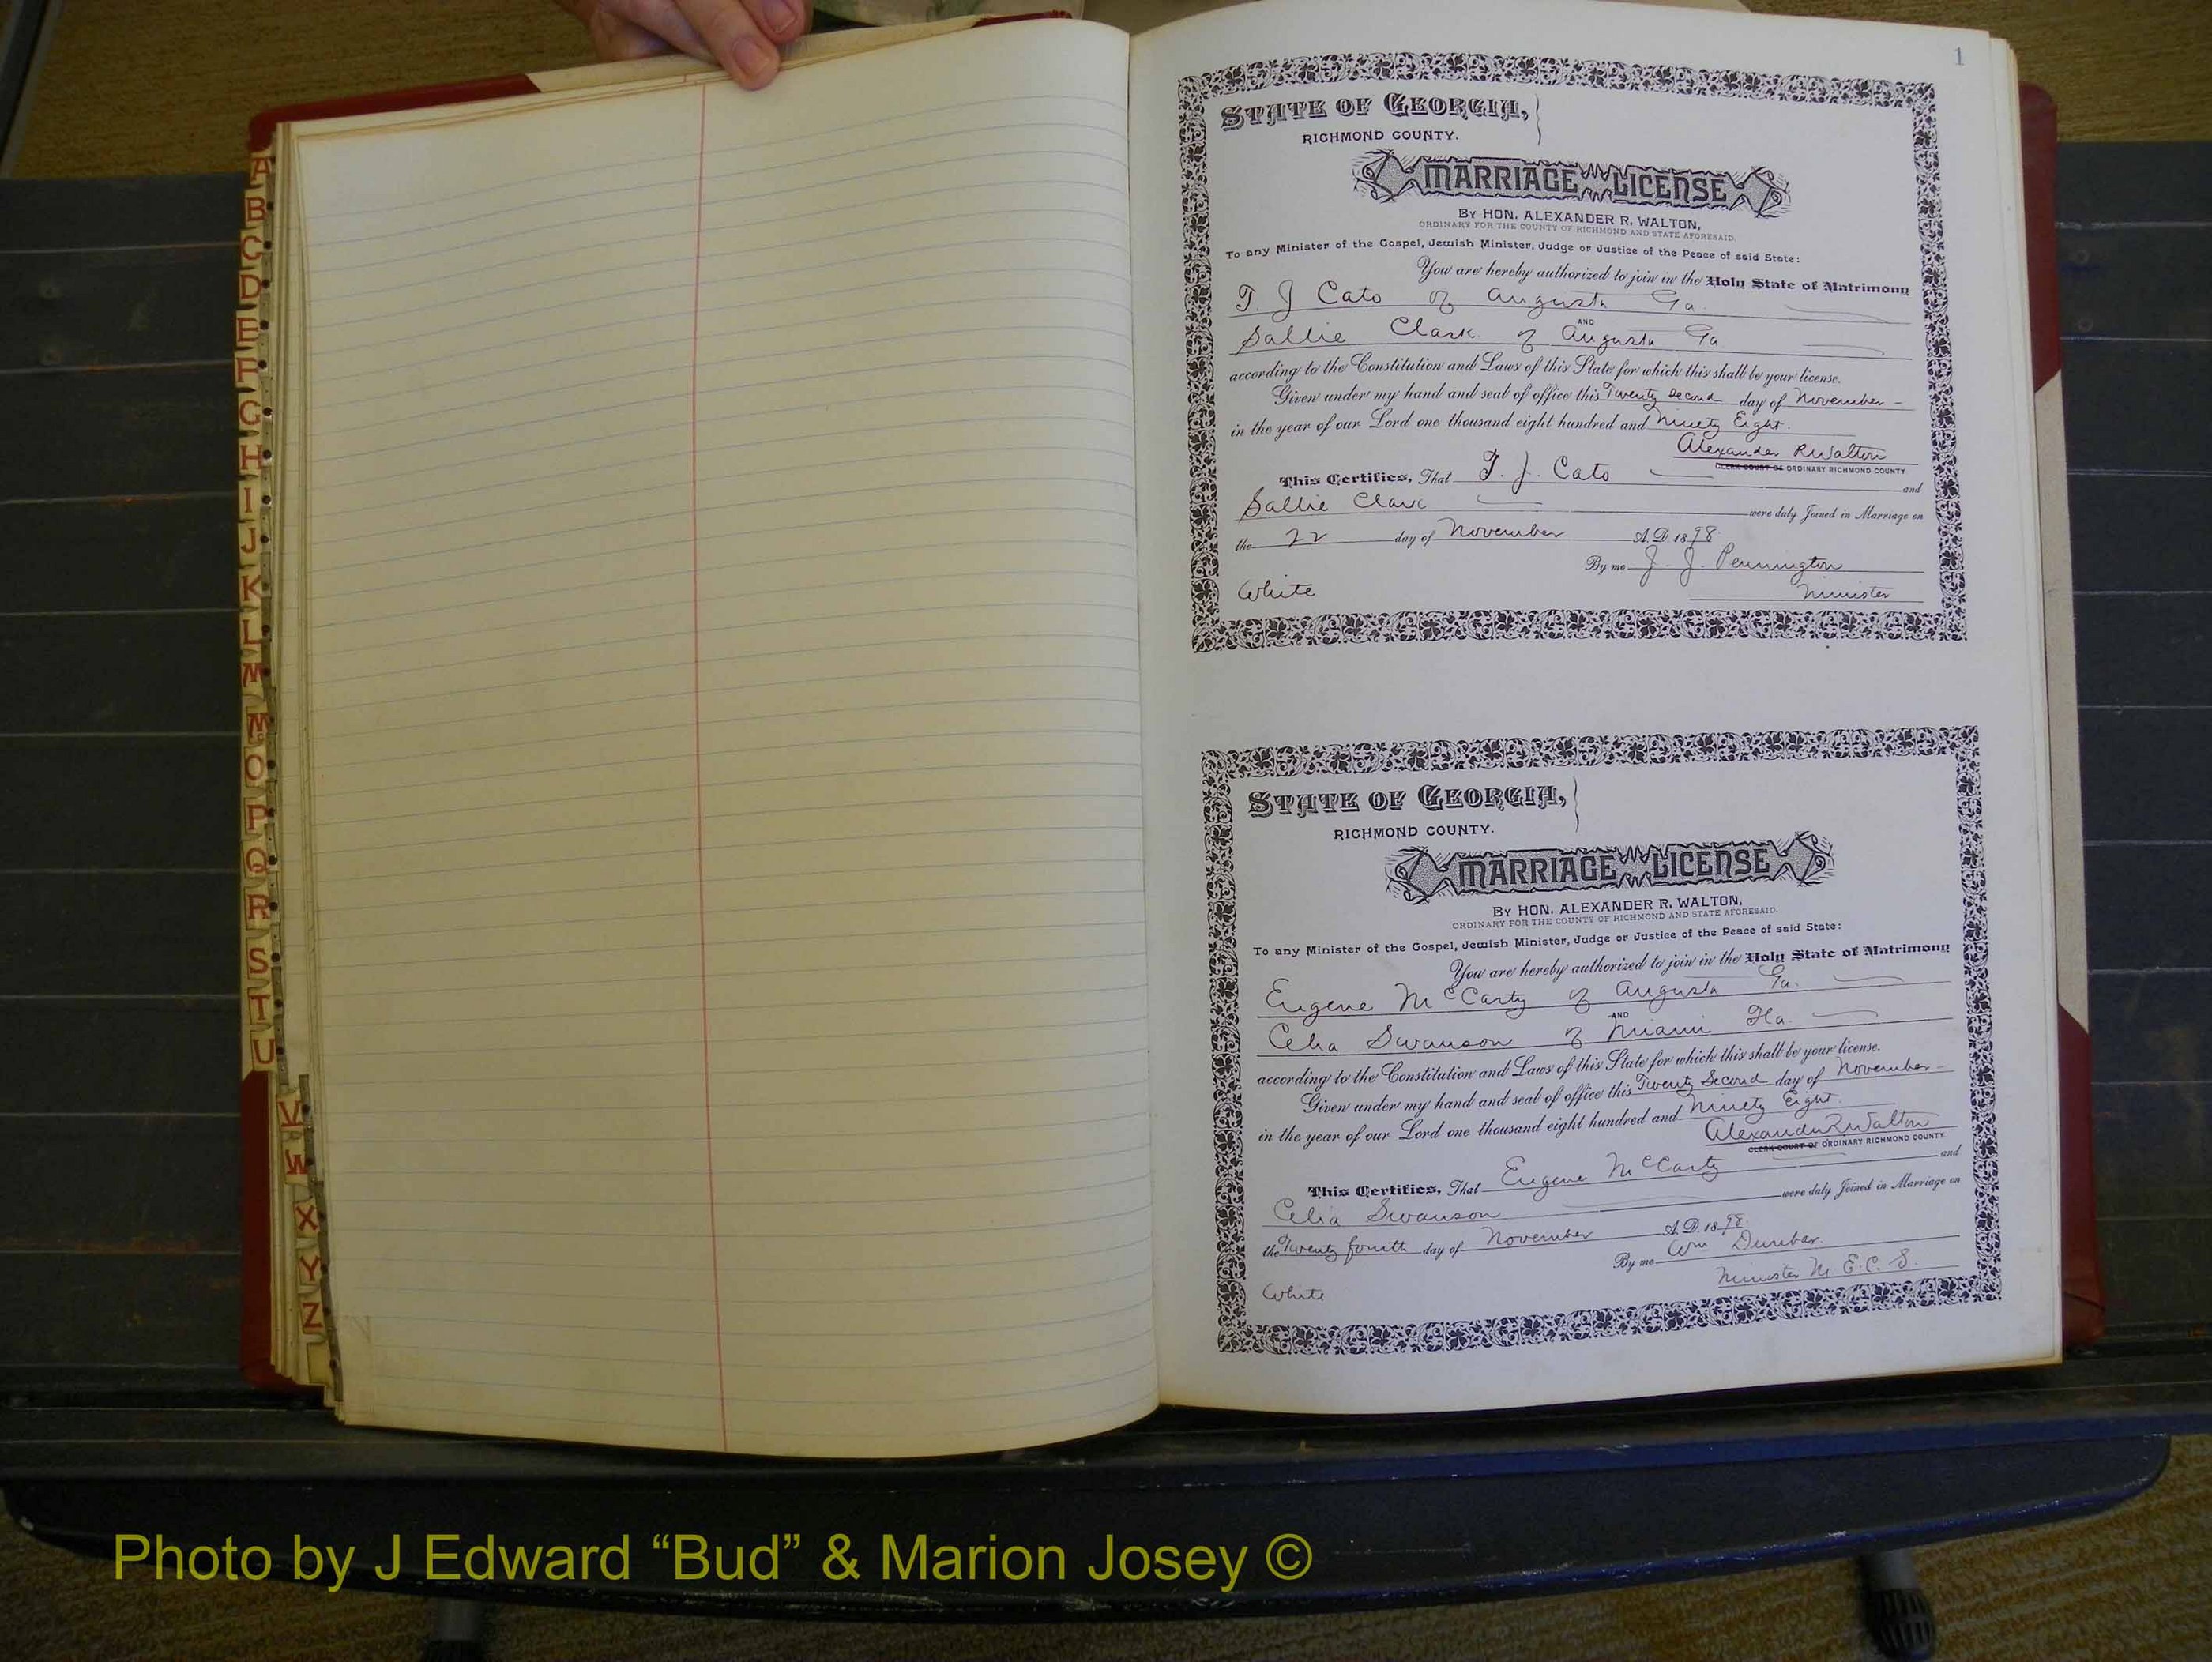 A
B
C
D
E
F
G
H
I
J
K
L
M
Mc
O
P
Q
R
S
T
U
V
W
X
Y
Z
1
STATE OF GEORGIA,
RICHMOND COUNTY.
MARRIAGE LICENSE
By HON. ALEXANDER R. WALTON,
ORDINARY FOR THE COUNTY OF RICHMOND AND STATE AFORESAID.
To any Minister of the Gospel, Jewish Minister, Judge or Justice of the Peace of said State:
You are hereby authorized to join in the Holy State of Matrimony
T. J Cato of Augusta Ga.
AND
Sallie Clark of Augusta Ga
according to the Constitution and Laws of this State for which this shall be your license.
Given under my hand and seal of office this Twenty second day of November
in the year of our Lord one thousand eight hundred and Ninety Eight.
Alexander R Walton
CLERK COURT OF ORDINARY RICHMOND COUNTY
This Certifies, That T. J. Cato and
Sallie Clark were duly Joined in Marriage on
the 22 day of November A.D. 1898
By me J. J. Pennington
White Minister
STATE OF GEORGIA,
RICHMOND COUNTY.
MARRIAGE LICENSE
By HON. ALEXANDER R. WALTON,
ORDINARY FOR THE COUNTY OF RICHMOND AND STATE AFORESAID.
To any Minister of the Gospel, Jewish Minister, Judge or Justice of the Peace of said State:
You are hereby authorized to join in the Holy State of Matrimony
Eugene McCarty of Augusta Ga.
AND
Celia Swanson of Miami Fla.
according to the Constitution and Laws of this State for which this shall be your license.
Given under my hand and seal of office this Twenty Second day of November
in the year of our Lord one thousand eight hundred and Ninety Eight.
Alexander R Walton
CLERK COURT OF ORDINARY RICHMOND COUNTY.
This Certifies, That Eugene McCarty and
Celia Swanson were duly Joined in Marriage on
the Twenty fourth day of November A.D. 1898
By me Wm Dunbar.
Minister M. E. C. S.
White
Photo by J Edward “Bud” & Marion Josey ©